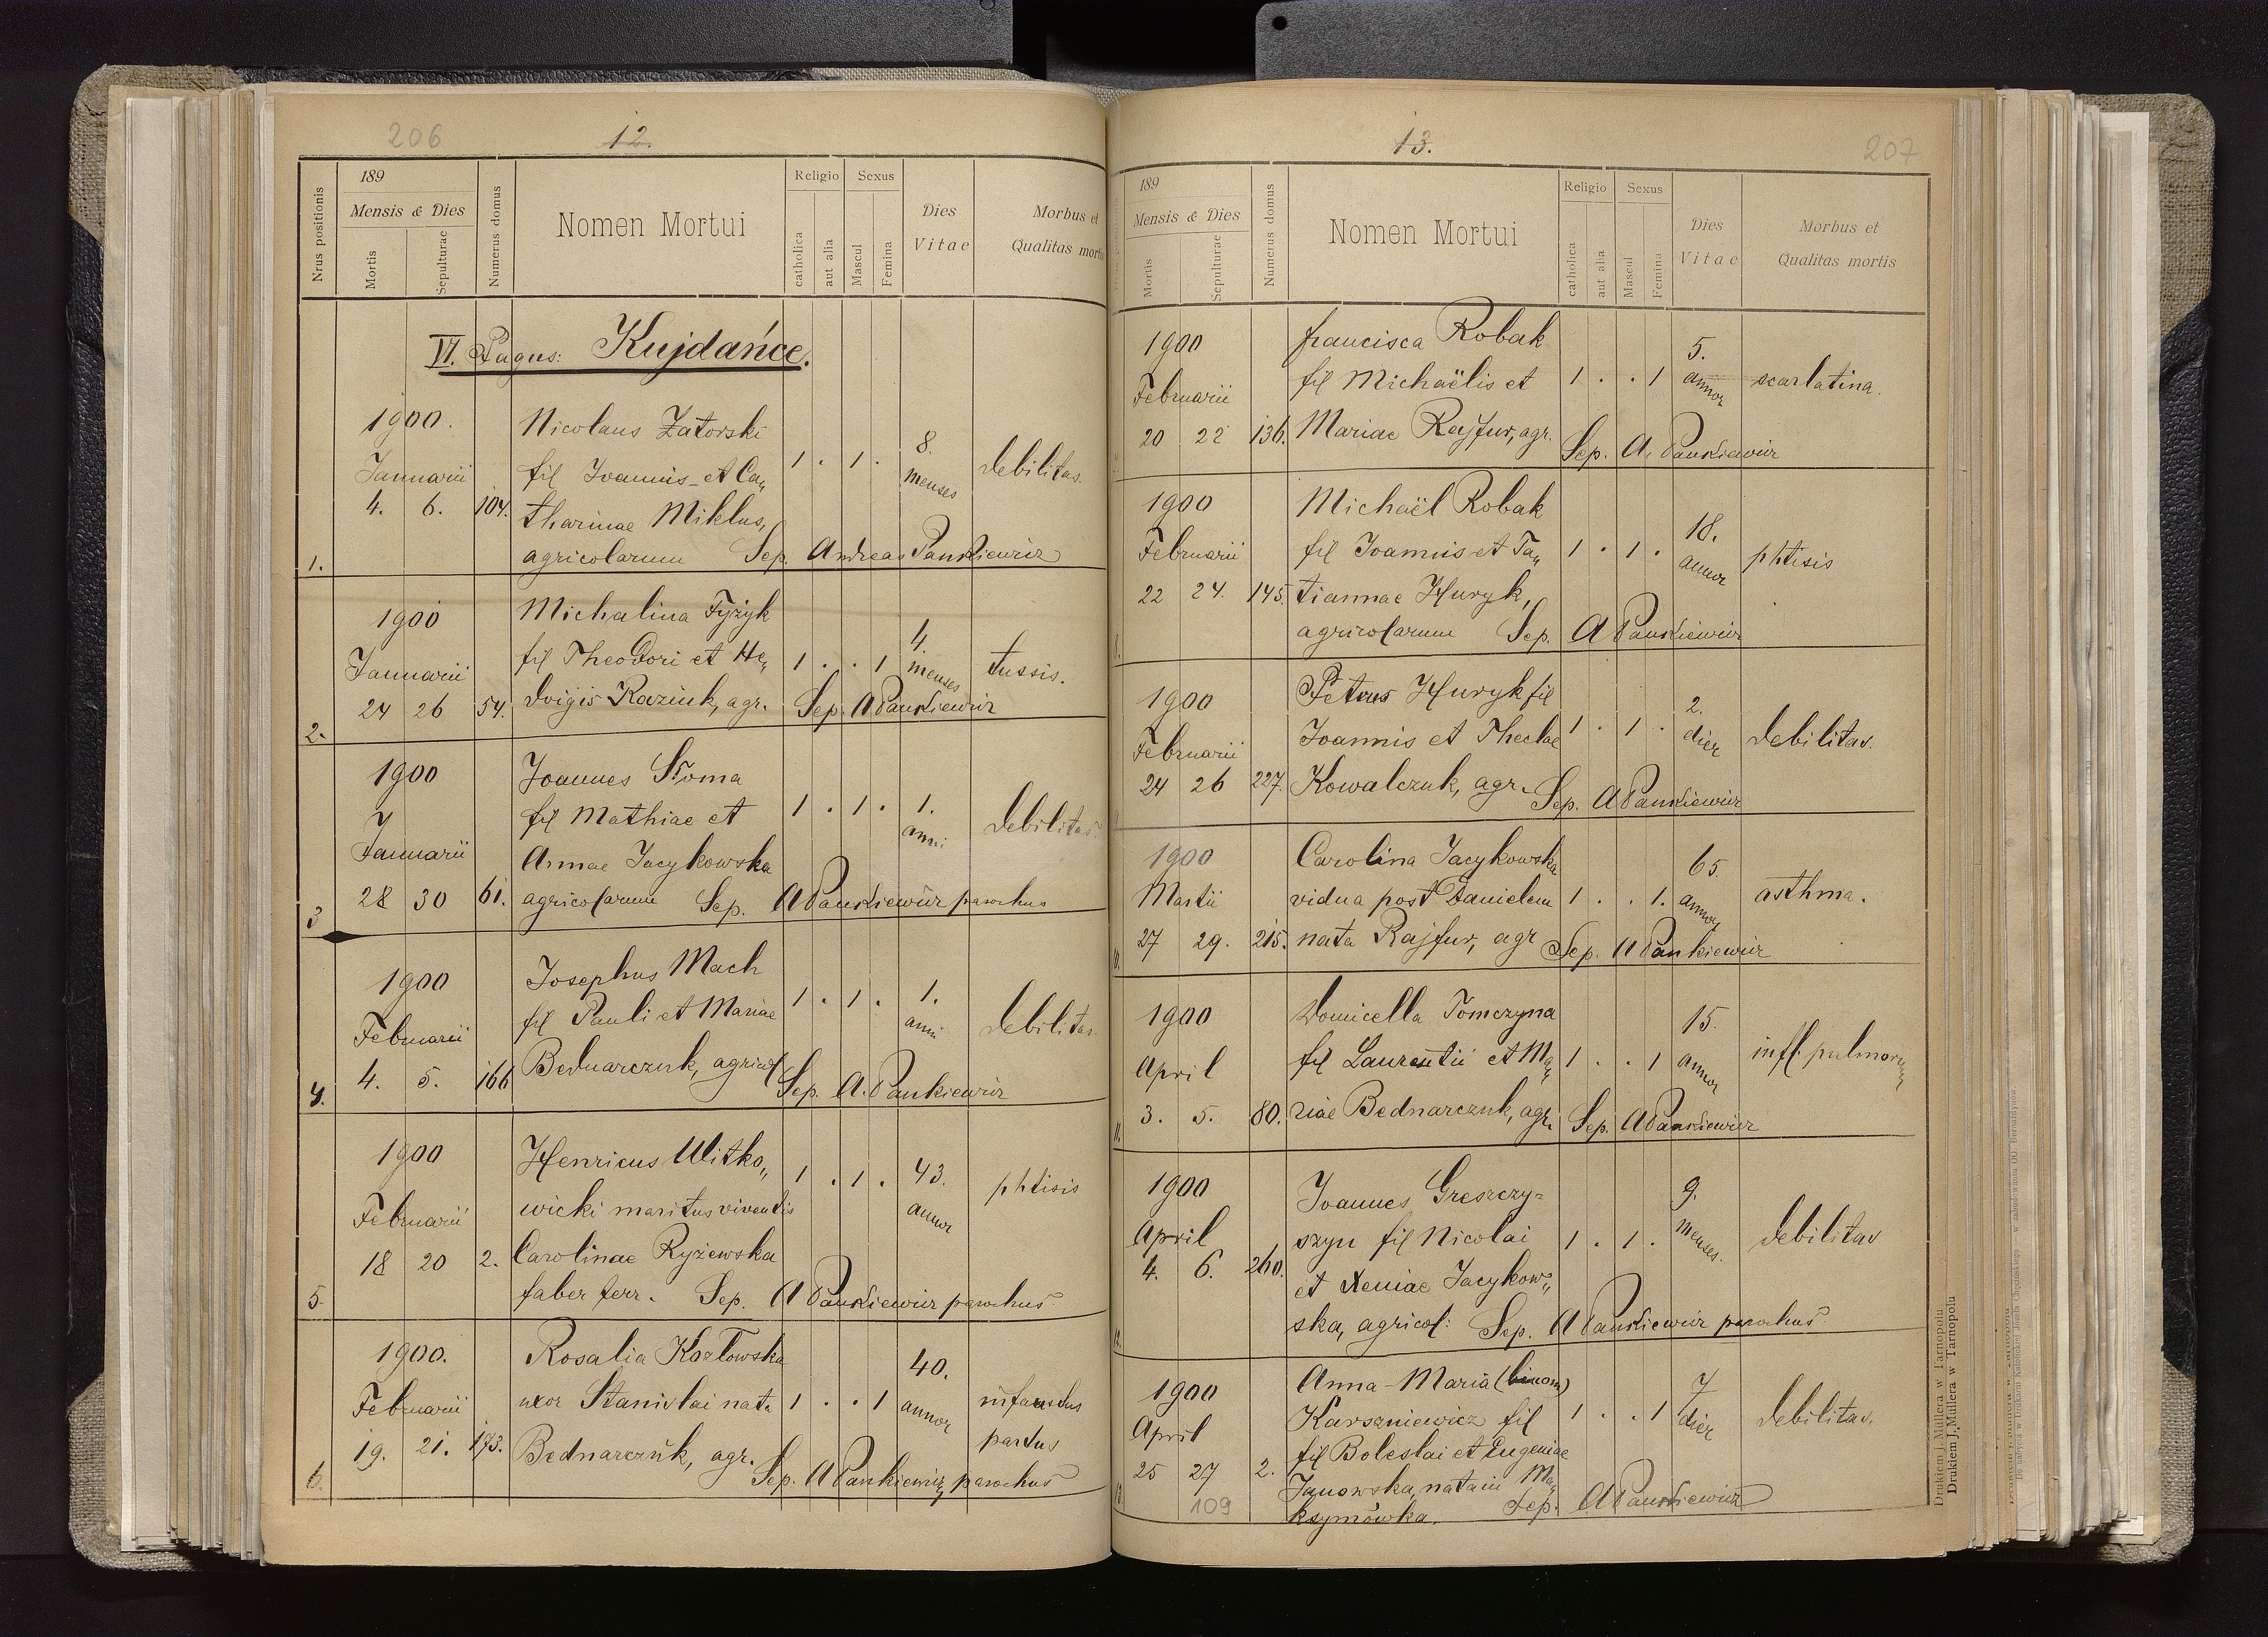 206
12.
Nrus positionis
189
Mensis & Dies
Mortis
Sepulturae
Numerus domus
Nomen Mortui
Religio
catholica
aut alia
Sexus
Mascul
Femina
Dies
Vitae
Morbus et
Qualitas mortis
VI. Pagus: Kujdańce.
1900. Nicolaus Zatorski
Januarii fil Joannis et Ca„ 1 . 1 . 8. menses debilitas.
4. 6. 104. tharinae Miklus,
1. agricolarum Sep. Andreas Pankiewicz
1900 Michalina Fyżyk
Januarii fil Theodori et He„ 1 . . 1 4. menses tussis.
24 26 54. dvigis Raziuk, agr. Sep. A Pankiewicz
2.
1900 Joannes Słoma
fil Mathiae et 1 . 1 . 1. anni debilitas
Januarii Annae Jacykowska
28 30 61. agricolarum Sep. A Pankiewicz parochus
3
1900 Josephus Mach
Februarii fil Pauli et Mariae 1 . 1 . 1. anni debilitas.
4. 5. 166 Bednarczuk, agricol Sep. A. Pankiewicz
4.
1900 Henricus Witko„
Februarii wicki maritus viventis 1 . 1 . 43. annor phtisis
18 20 2. Carolinae Ryżewska
5. faber ferr. Sep. A Pankiewicz parochus
1900. Rosalia Kozłowska
Februarii uxor Stanislai nata 1 . . 1 40. annor infaustus
partus
19. 21. 173. Bednarczuk, agr.
6. Sep. A Pankiewicz, parochus
13.
207
189
Mensis & Dies
Mortis
Sepulturae
Numerus domus
Nomen Mortui
Religio
catholica
aut alia
Sexus
Mascul
Femina
Dies
Vitae
Morbus et
Qualitas mortis
1900 francisca Robak
Februarii fil Michaëlis et 1 . . 1 5. annor scarlatina.
20 22 136. Mariae Rajfur, agr. Sep. A. Pankiewicz
1900 Michaël Robak
Februarii fil Joannis et Ta„ 1 . 1 . 18. annor phtisis
22 24. 145. tiannae Huryk,
agricolarum Sep. A Pankiewicz
1900 Petrus Huryk fil
Februarii Joannis et Theclae 1 . 1 . 2. dier debilitas.
24 26 227. Kowalczuk, agr. Sep. A Pankiewicz
1900 Carolina Jacykowska
Martii vidua post Danielem 1 . . 1. 65 annor asthma.
27 29. 215. nata Rajfur, agr Sep. A Pankiewicz
10.
1900 Domicella Tomczyna
April fil Laurentii et Ma„ 1 . . 1 15. annor infl. pulmorum
3. 5. 80. riae Bednarczuk, agr. Sep. A Pankiewicz
11.
1900 Joannes Greszczy=
April szyn fil Nicolai 1 . 1 . 9. menses. debilitas
4. 6. 260. et Xeniae Jacykow„
ska, agricol: Sep. A Pankiewicz parochus
12.
1900 Anna-Maria (binom)
April Karszniewicz fil 1 . . 1 7 dier debilitas.
fil Boleslai et Eugeniae
25 27 2. Janowska, nata in Ma„
13. ksymówka. Sep. A Pankiewicz
109
Drukiem J. Müllera w Tarnopolu
Drukiem J. Müllera w Tarnopolu